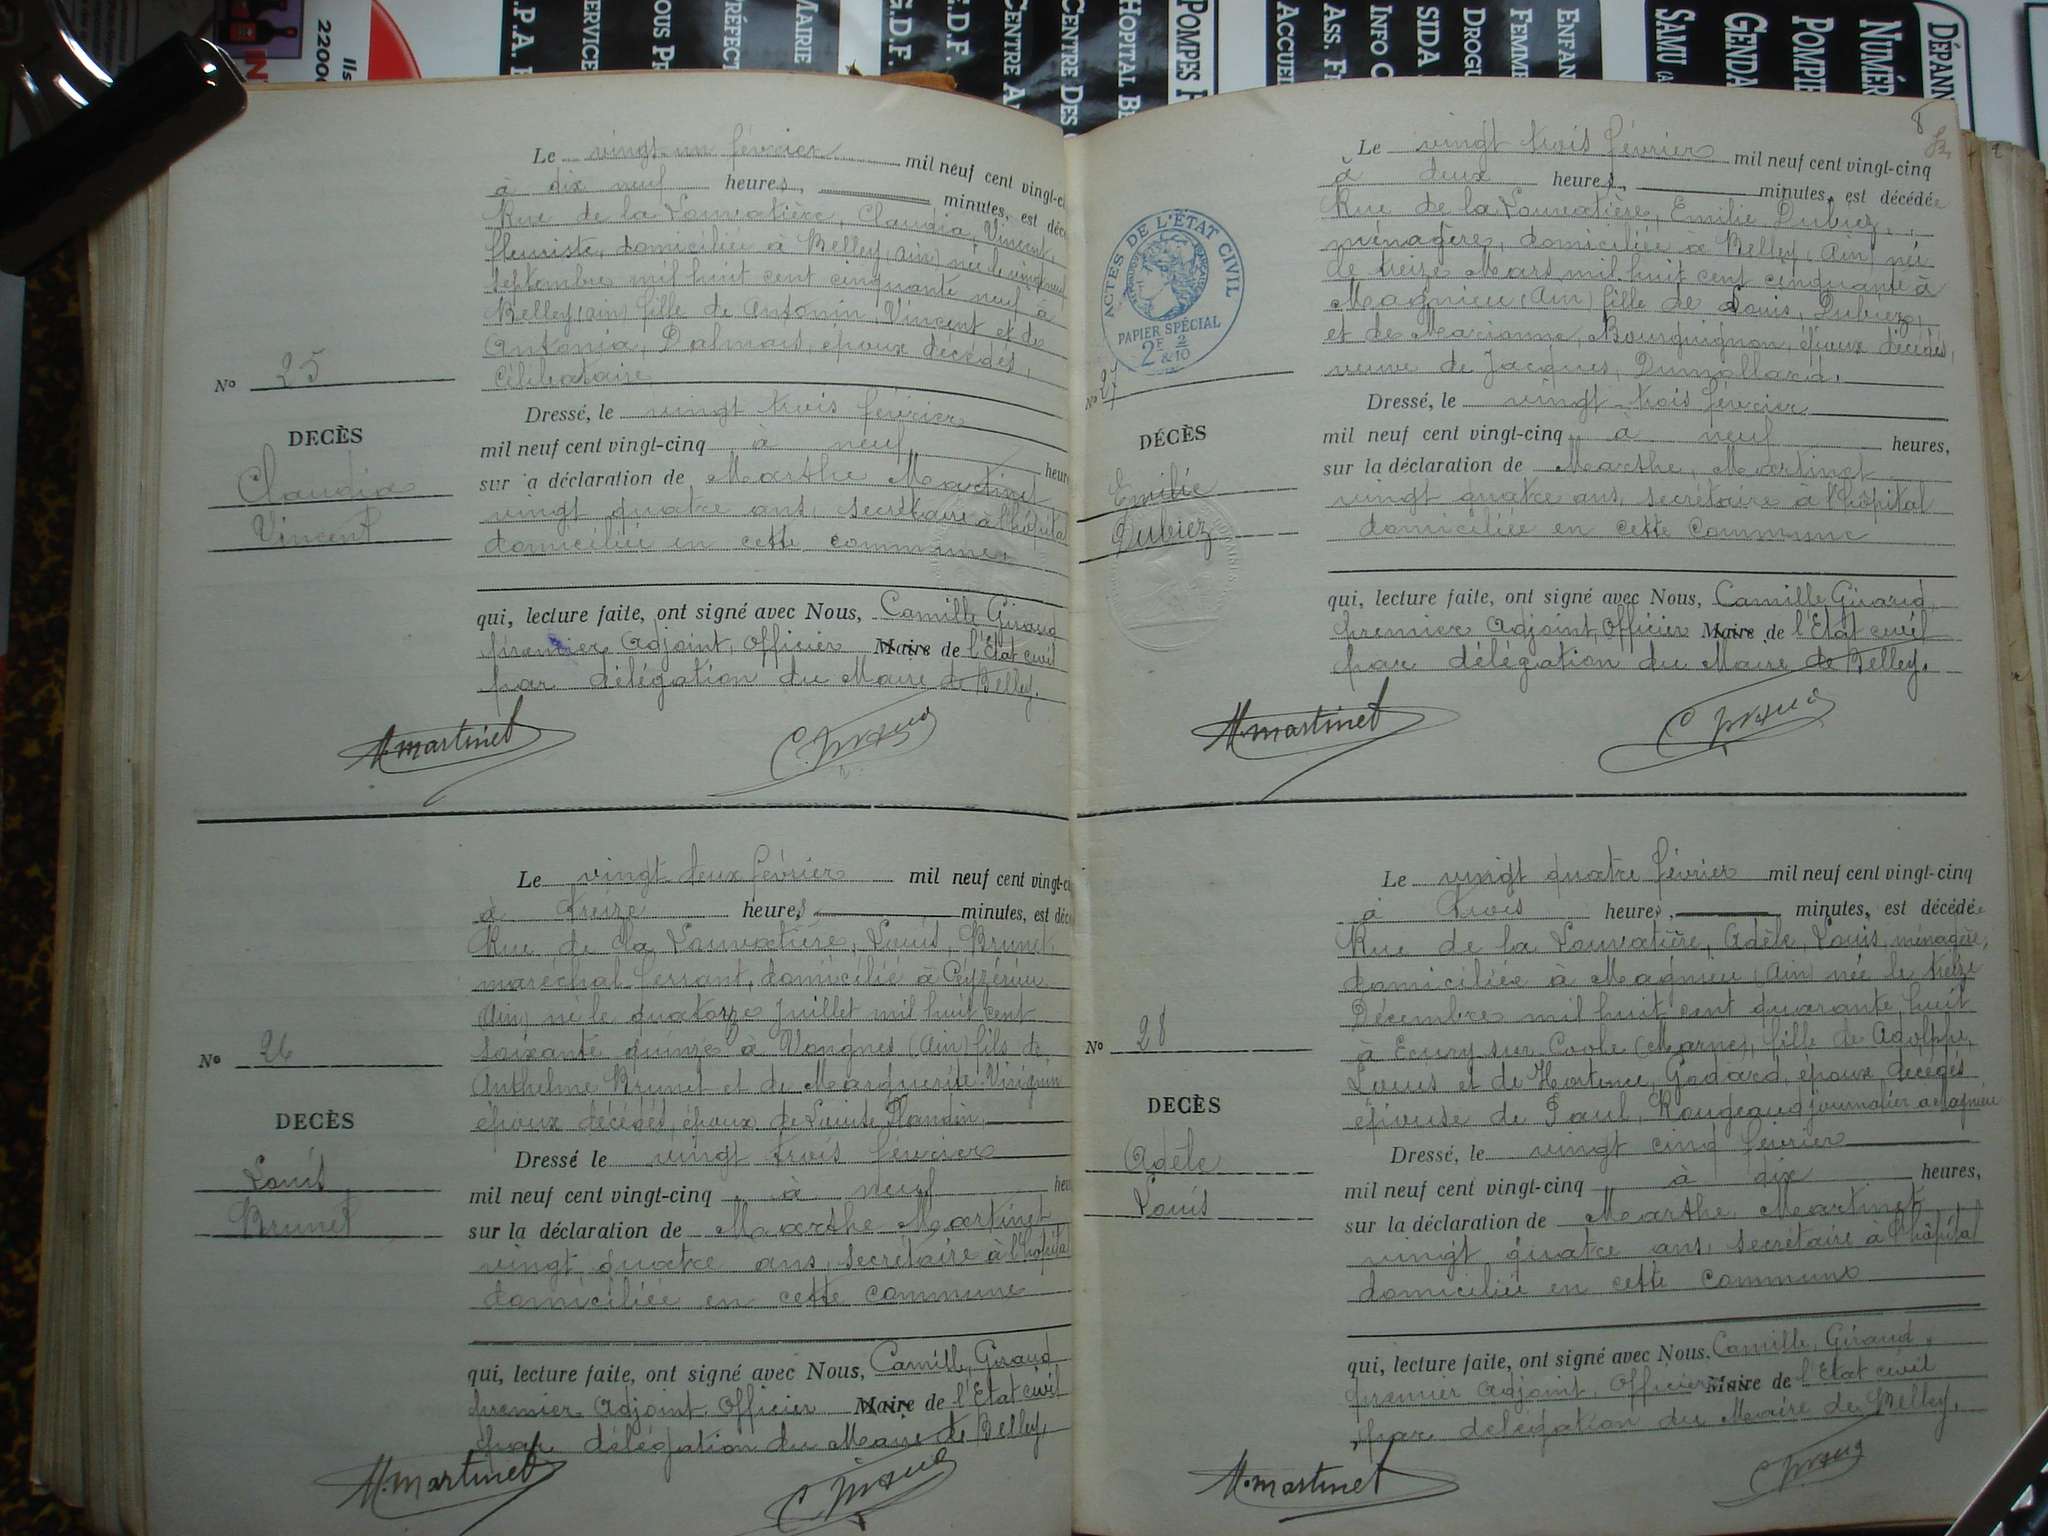 Ils
22000
.P.A.
SERVICE
OUS PR
PRÉFECT
MAIRIE
G.D.F.
E.D.F.
CENTRE A
CENTRE DES
HOPITAL B
POMPES F
ACCUEI
ASS. F
INFO
SIDA
DROGU
FEMME
ENFAN
SAMU (
GENDA
POMPIE
NUMÉR
DÉPANN
Le vingt-un février mil neuf cent vingt-c
à dix neuf heures, minutes, est déc
Rue de la Louvatière, Claudia, Vincent,
fleuriste, domiciliée à Belley (Ain) née le vingt neuf
Septembre mil huit cent cinquante neuf à
Belley (Ain) fille de Antonin, Vincent et de
Antonia, Dalmais, époux décédés,
Célibataire
No 25
DECÈS
Claudia
Vincent
Dressé, le vingt trois février
mil neuf cent vingt-cinq à neuf heur
sur la déclaration de Marthe Martinet
vingt quatre ans, secrétaire à l'hôpital
domiciliée en cette commune.
qui, lecture faite, ont signé avec Nous, Camille Giraud
premier Adjoint, Officier Maire de l'Etat civil
par délégation du Maire de Belley.
M. Martinet
C. Giraud
Le vingt deux février mil neuf cent vingt-ci
à treize heures, minutes, est déc
Rue de la Louvatière, Louis, Brunet
maréchal ferrant, domicilié à Ceyzérieu
(Ain) né le quatorze Juillet mil huit cent
soixante quinze à Vongnes (Ain) fils de
Anthelme Brunet et de Marguerite
époux décédés, époux de
No 26
DECÈS
Louis
Brunet
Dressé le vingt trois février
mil neuf cent vingt-cinq à neuf heu
sur la déclaration de Marthe Martinet
vingt quatre ans, secrétaire à l'hôpital
domiciliée en cette commune
qui, lecture faite, ont signé avec Nous, Camille, Giraud
premier Adjoint Officier Maire de l'Etat civil
par délégation du Maire de Belley.
M. Martinet
C. Giraud
8
Le vingt trois février mil neuf cent vingt-cinq
à deux heures, minutes, est décédée
Rue de la Louvatière, Emilie Dubiez,
ménagère, domiciliée à Belley (Ain) née
le treize Mars mil huit cent cinquante à
Magnieu (Ain) fille de Louis, Dubiez,
et de Marianne, Bourguignon, époux décédés,
veuve de Jacques, Dumollard.
ACTES DE L'ÉTAT CIVIL
PAPIER SPÉCIAL
2E & 2/10
No 27
DÉCÈS
Emilie
Dubiez
Dressé, le vingt-trois février
mil neuf cent vingt-cinq à neuf heures,
sur la déclaration de Marthe, Martinet
vingt quatre ans, secrétaire à l'hôpital
domiciliée en cette Commune
qui, lecture faite, ont signé avec Nous, Camille Giraud,
premier Adjoint, Officier Maire de l'Etat civil
par délégation du Maire de Belley.
M. Martinet
C. Giraud
Le vingt quatre février mil neuf cent vingt-cinq
à trois heures, minutes, est décédée
Rue de la Louvatière, Adèle, Louis, ménagère,
domiciliée à Magnieu (Ain) née le treize
Décembre mil huit cent quarante huit
à Ecury sur Coole (Marne), fille de Adolphe,
Louis et de Hortence, Godard, époux décédés
épouse de Paul, Rougeaud journalier à Magnieu
No 28
DECÈS
Adèle
Louis
Dressé, le vingt cinq février
mil neuf cent vingt-cinq à dix heures,
sur la déclaration de Marthe, Martinet
vingt quatre ans, secrétaire à l'hôpital
domiciliée en cette commune
qui, lecture faite, ont signé avec Nous, Camille, Giraud,
premier Adjoint, Officier Maire de l'Etat civil
par délégation du Maire de Belley.
M. Martinet
C. Giraud